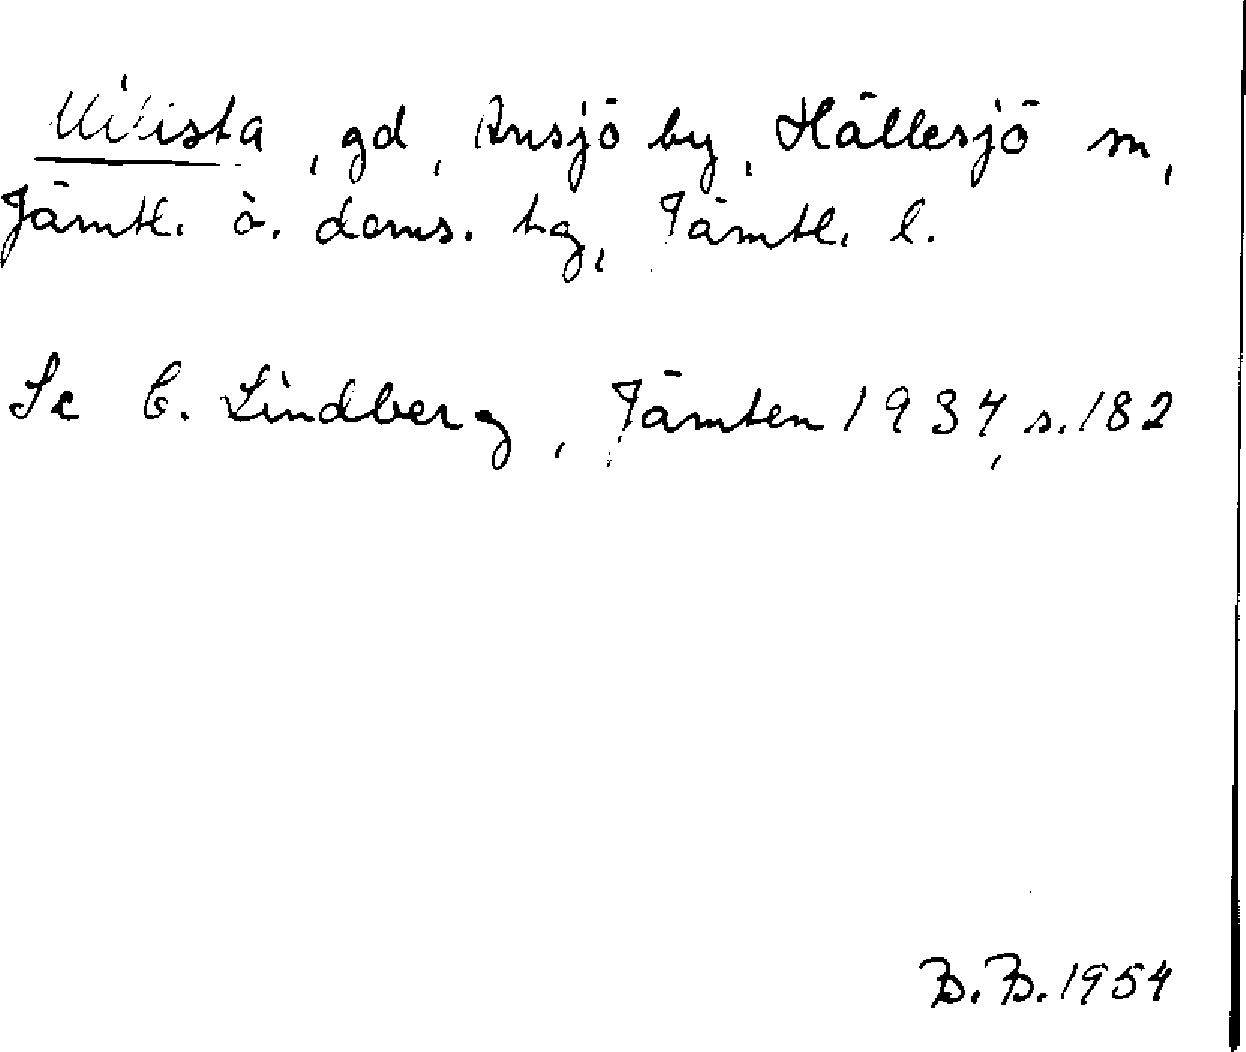 gd, Ansjö by, Hällesjö sn,
Jämtl. ö. doms. hg, Jämtl. l.
Se C. Lindberg, Jämten 1934, s. 182
B.B. 1954